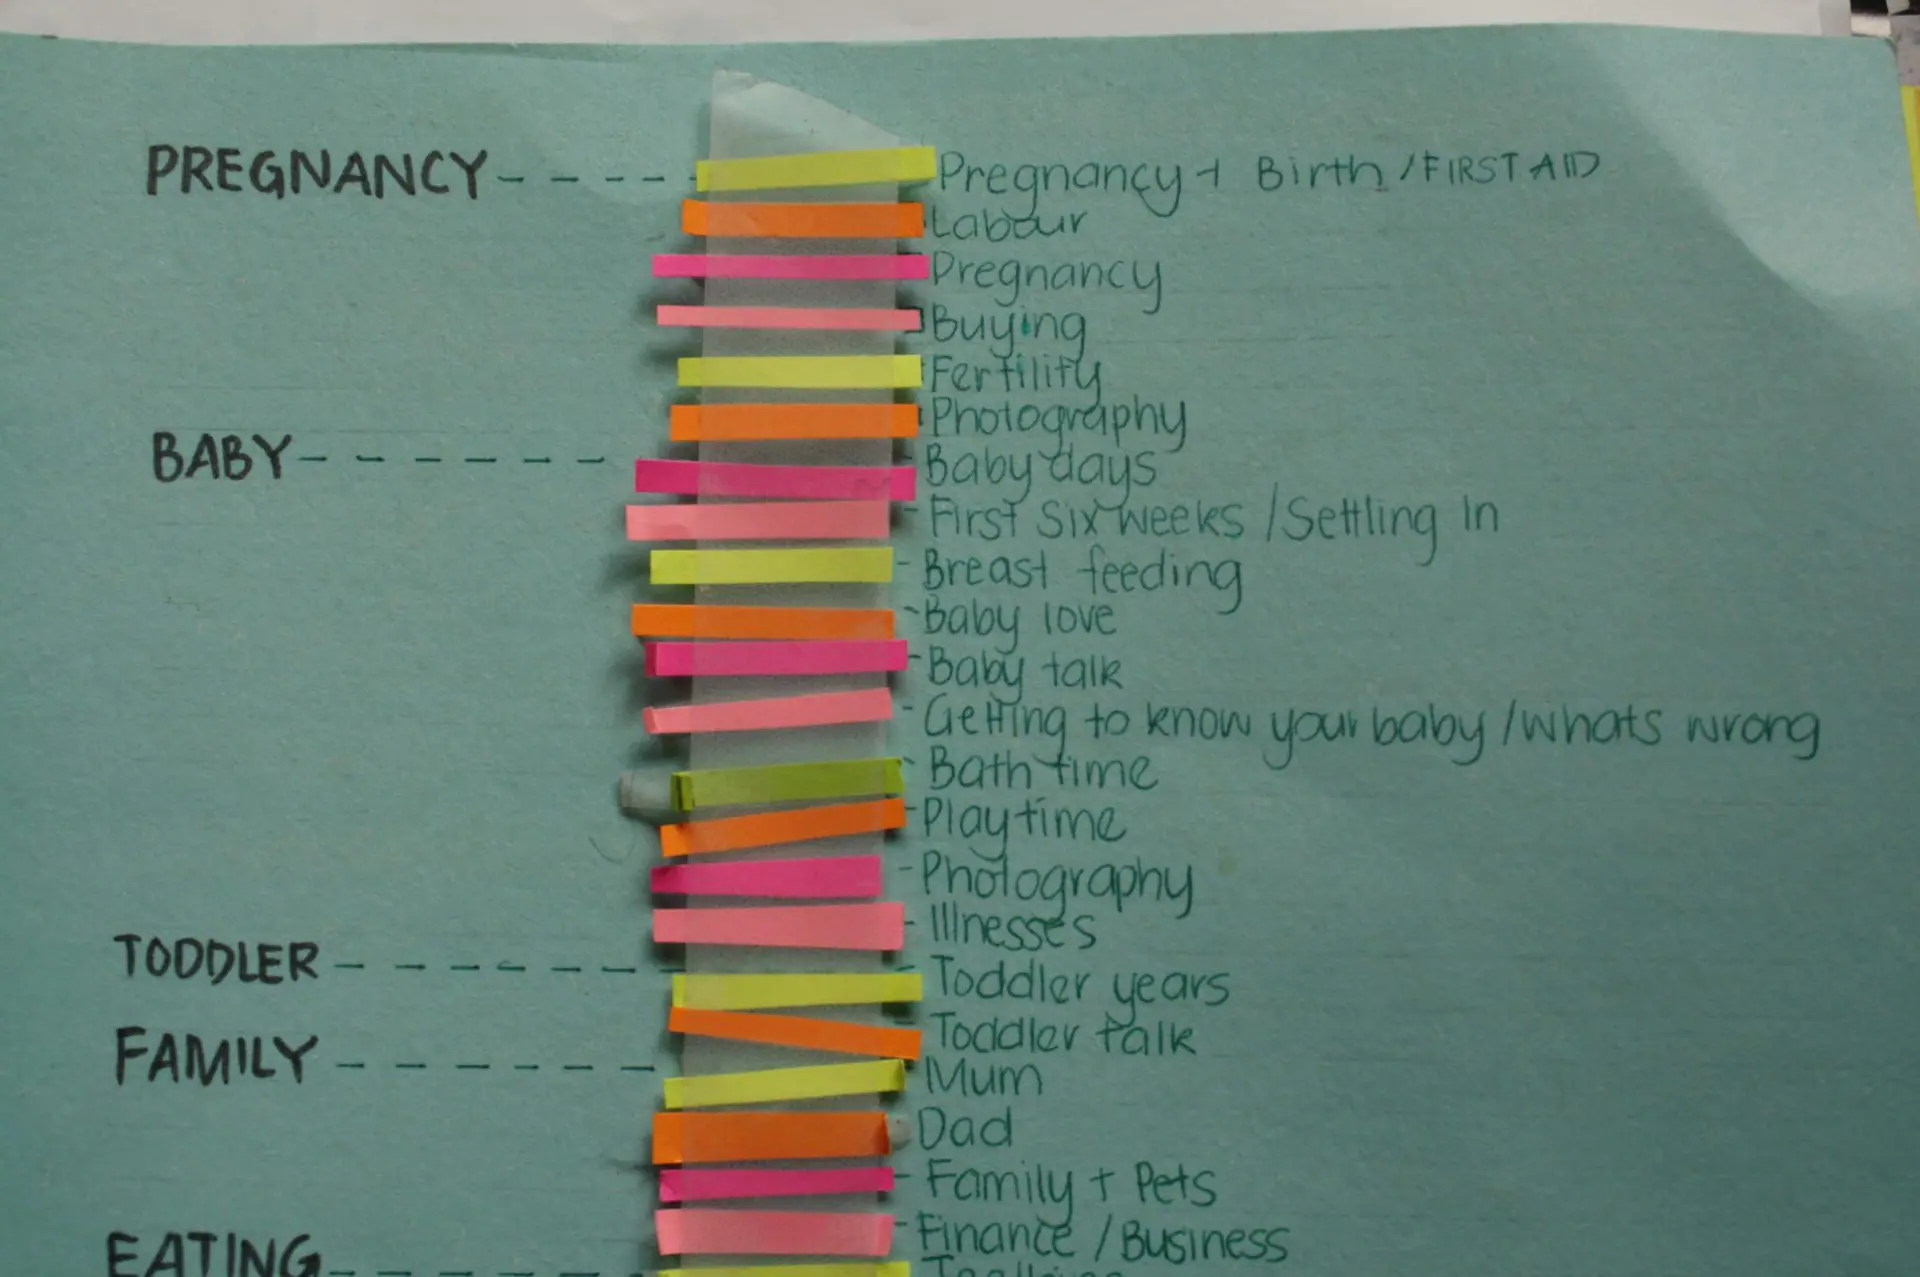 PREGNANCY - - - - Pregnancy + Birth / FIRST AID
Labour
Pregnancy
Buying
Fertility
Photography
BABY - - - - - - Baby days
- First six weeks / Settling In
- Breast feeding
- Baby love
- Baby talk
- Getting to know your baby / whats wrong
- Bath time
- Playtime
- Photography
- Illnesses
TODDLER - - - - - - - - Toddler years
- Toddler talk
FAMILY - - - - - - - Mum
Dad
- Family + Pets
- Finance / Business
EATING - - - - - -